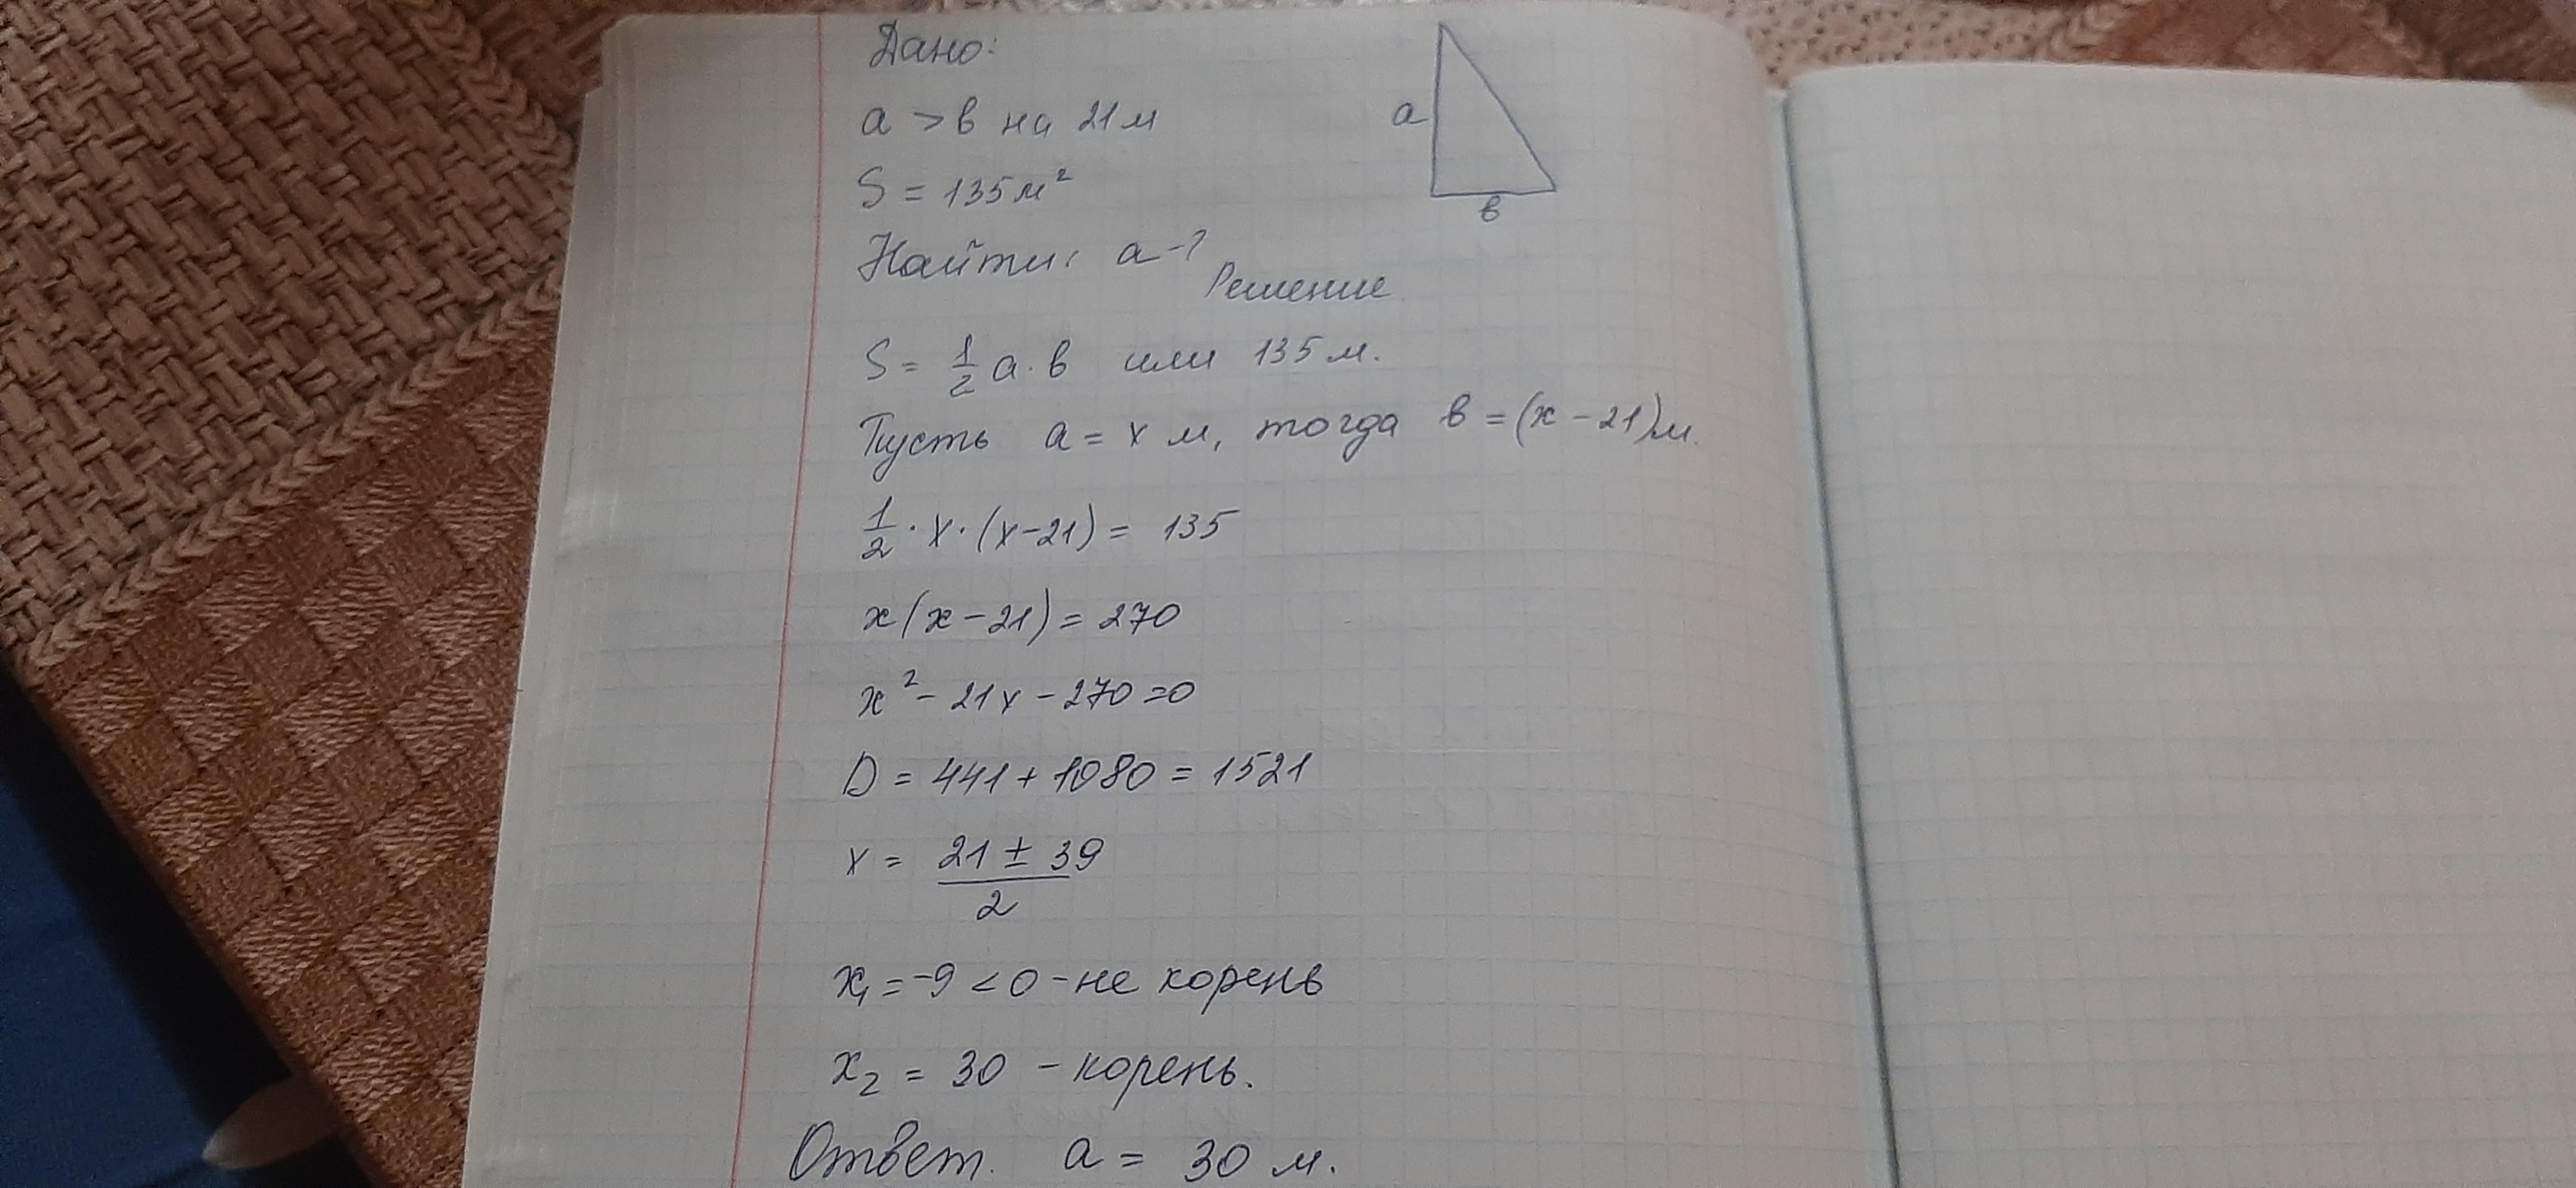 Дано:
a > в на 21 м
S = 135 м²
a
в
Найти: a - ?
Решение
S = 1/2 a · в или 135 м.
Пусть a = x м, тогда в = (x - 21) м.
1/2 · x · (x - 21) = 135
x (x - 21) = 270
x² - 21x - 270 = 0
D = 441 + 1080 = 1521
x = (21 ± 39)/2
x₁ = -9 < 0 - не корень
x₂ = 30 - корень.
Ответ. a = 30 м.